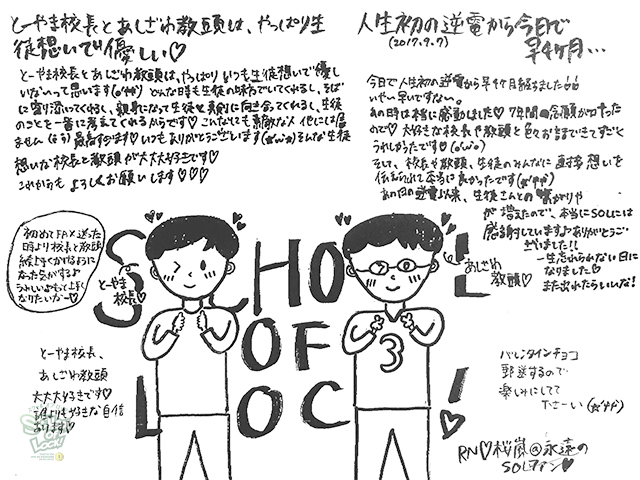 とーやま校長とあしざわ教頭は、やっぱり生
徒想いで優しい♡
とーやま校長とあしざわ教頭は、やっぱりいつも生徒想いで優し
いないって思います
どんな時も生徒の味方でいてくれるし、そば
に寄り添ってくれるし、親身になって生徒と真剣に向き合ってくれるし、生徒
のことを一番に考えてくれるからです♡こんなにも素敵な人他には居
ません
最高すぎます♡いつもありがとうございます
そんな生徒
想いな校長と教頭が大大大好きです♡
これからもよろしくお願いします♡♡♡
人生初の逆電から今日で
(2017.9.7)
早4ヶ月…
今日で人生初の逆電から早4ヶ月経ちました
いやー早いですない。
あの時は本当に感動しました♡7年間の念願が叶った
ので♡大好きな校長や教頭と色々お話できてすごく
うれしかったです♡
そして、校長や教頭、生徒のみんなに直接想いを
伝えられて本当に良かったです
あの日の逆電以来、生徒さんとの繋がりや
が増えたので、本当にSOLには
感謝しています♪ありがとうご
ざいました!!
一生忘れられない日に
なりました♡
また出れたらいいな!
初めてFAX送った
時より校長と教頭
絵上手くかけるように
なった気がする♪
うれしいよもって上手く
なりたいなー♡
SCHOOL
OF
LOCK!
とーやま
校長♡
あしざわ
教頭♡
3
とーやま校長、
あしざわ教頭
大大大好きです♡
誰よりも好きな自信
あります♡
バレンタインチョコ
郵送するので
楽しみにしてて
下さーい
RN♡桜嵐@永遠の
SOLファン♡